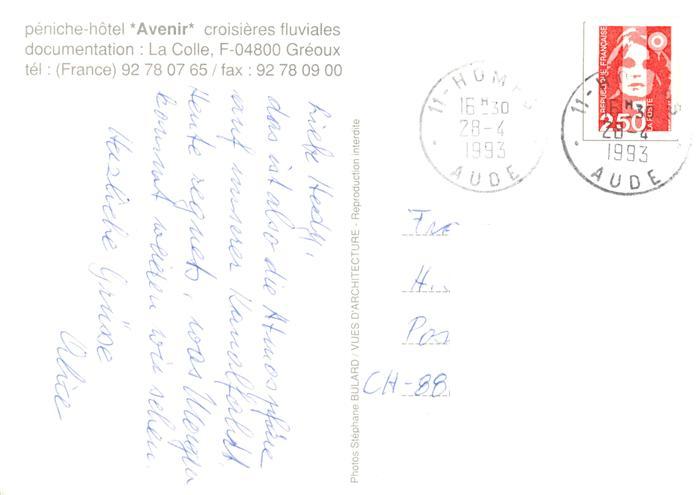 péniche-hôtel *Avenir* croisières fluviales
documentation : La Colle, F-04800 Gréoux
tél : (France) 92 78 07 65 / fax : 92 78 09 00
Liebe Hedy,
das ist also die Atmosphäre
auf unserer Kanalfahrt.
Heute regnets, was Morgen
kommt werden wir sehen.
Herzliche Grüsse
Alice
Photos Stéphane BULARD / VUES D'ARCHITECTURE - Reproduction interdite
11-HOMPS
16 H 30
28-4
1993
AUDE
REPUBLIQUE FRANÇAISE
2,50
LA POSTE
11-HOMPS
28-4
1993
AUDE
H..
Pos
CH-88